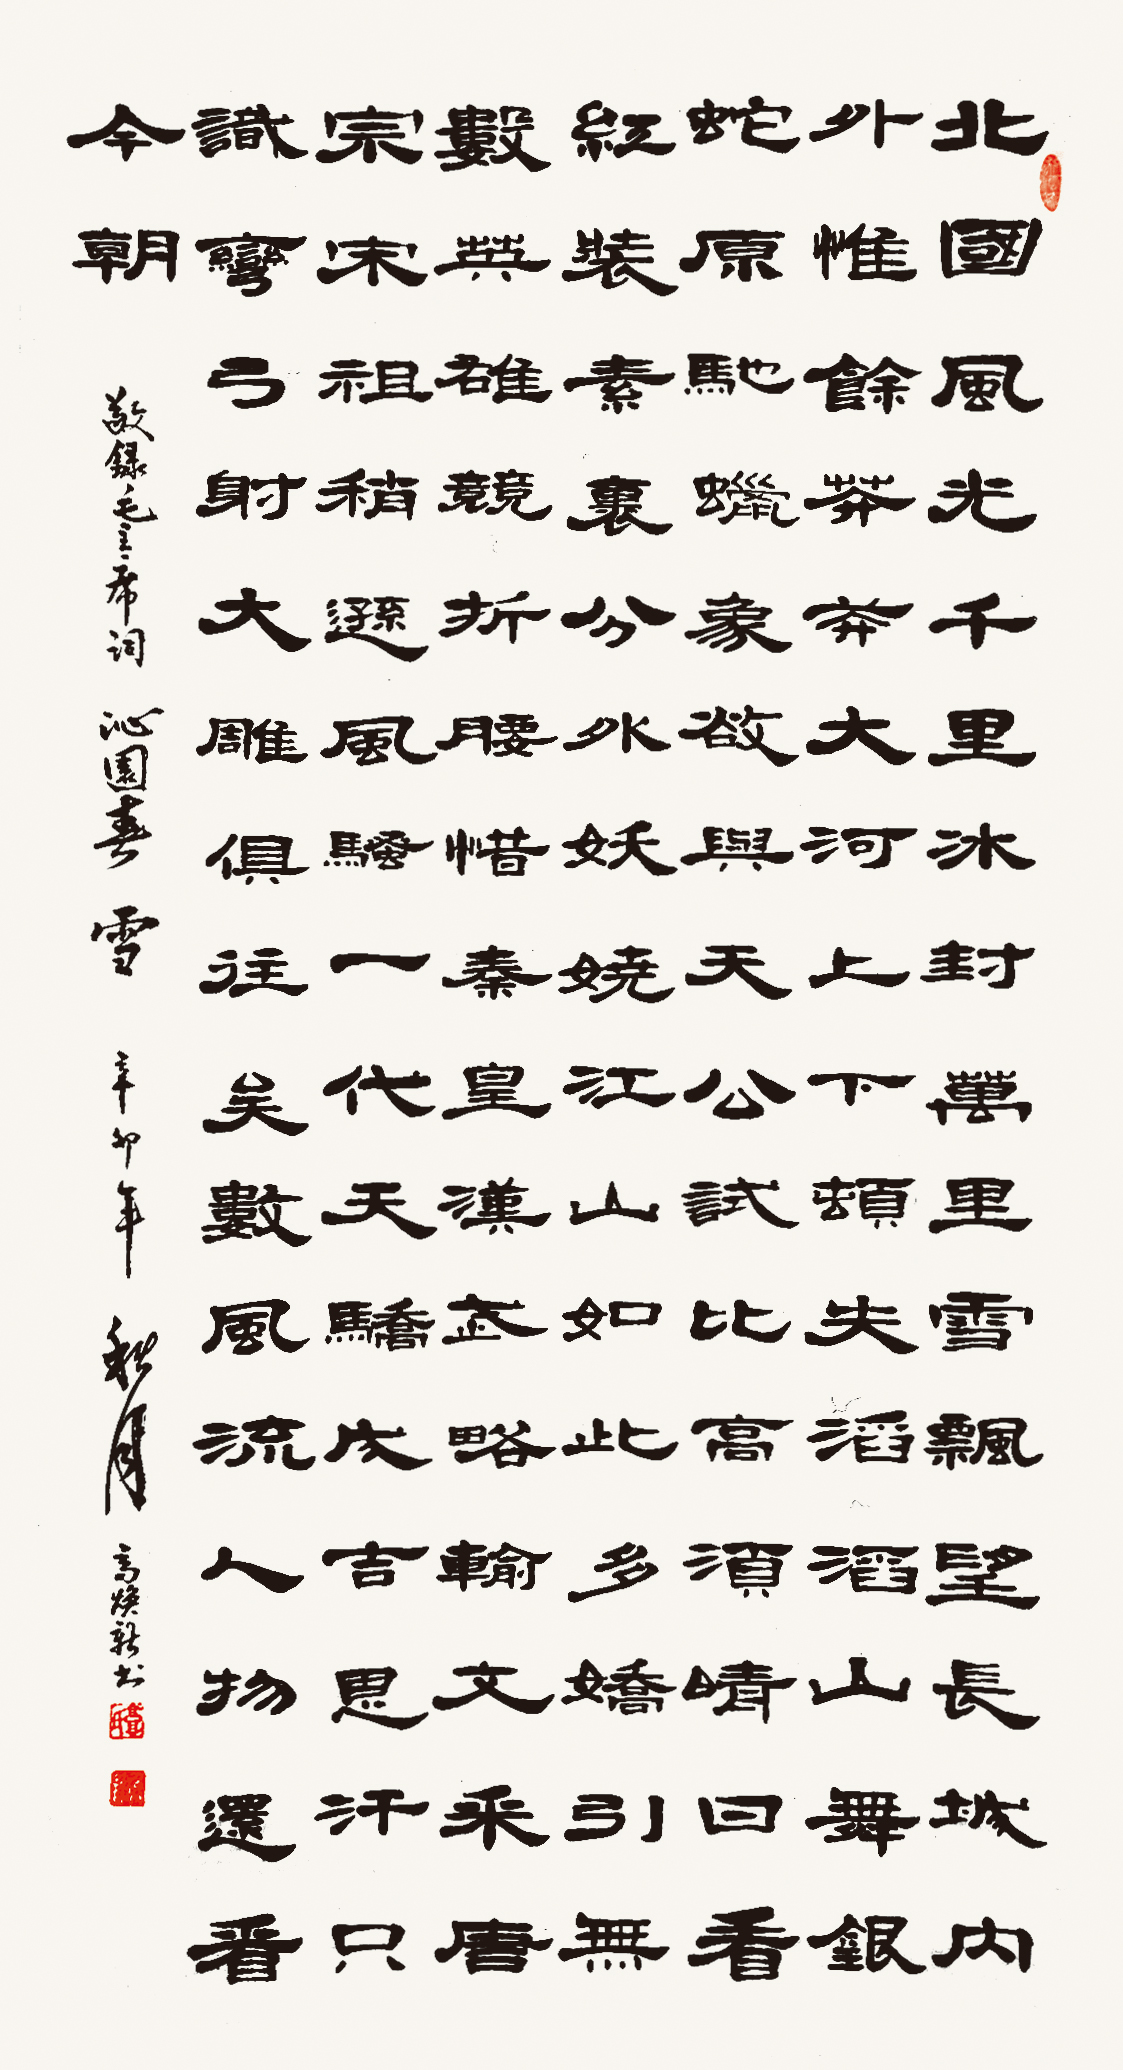 北國風光千里冰封萬里雪飄望長城內
外惟餘莽莽大河上下頓失滔滔山舞銀
蛇原馳蠟象欲與天公試比高須晴日看
紅裝素裹分外妖嬈江山如此多嬌引無
數英雄競折腰惜秦皇漢武略輸文采唐
宗宋祖稍遜風騷一代天驕成吉思汗只
識彎弓射大雕俱往矣數風流人物還看
今朝
敬錄毛主席詞 沁園春 雪 辛卯年 秋月 高焕新书